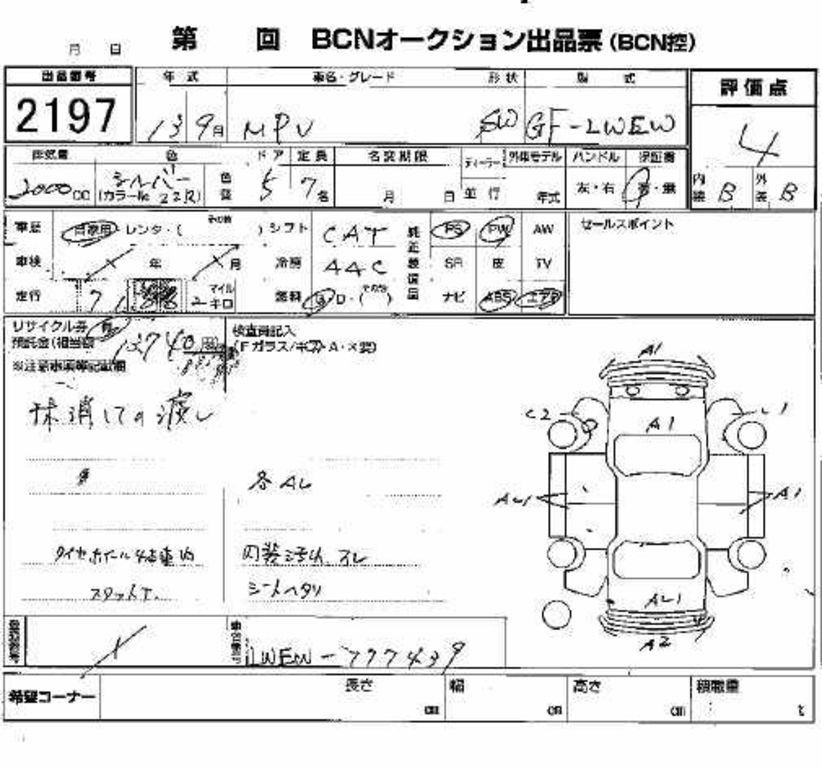 月 日 第 回 BCNオークション出品票(BCN控)
出品番号 年式 車名・グレード 形状 型式 評価点
2197 13 9月 MPV SW GF-LWEW 4
排気量 色 ドア 定員 名変期限 ディーラー 外車モデル ハンドル 保証書
2000cc シルバー 色替 5 7名 月 日 並行 年式 左・右 有・無 内装 B 外装 B
(カラーNo 22R)
車歴 自家用・レンタ・( その他 ) シフト CAT 純正装備品 PS PW AW セールスポイント
車検 / 年 / 月 冷房 AAC SR 皮 TV
走行 マイル キロ 燃料 G・D・( その他 ) ナビ ABS エアB
リサイクル券 有 検査員記入
預託金(相当額 13740円 (Fガラス/キズ・A・×要)
※注意事項等記載欄
抹消しての渡し
A1
C2 A1 L1
各AL
AL1 A1
タイヤホイール4本車内 内装汚れ スレ
スタットレ シートヘタリ
AL1
A2
登録番号 / 車台番号 LWEW-777439
希望コーナー 長さ cm 幅 cm 高さ cm 積載量 t